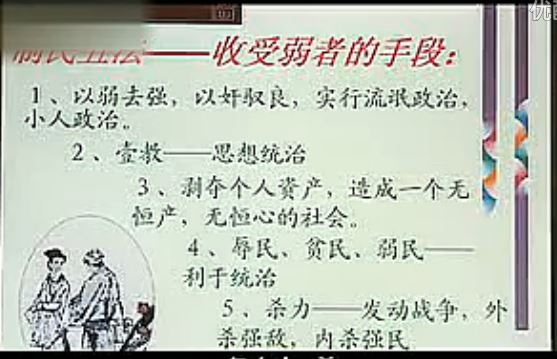 ——收受弱者的手段：
1、以弱去强，以奸驭良，实行流氓政治，
小人政治。
2、壹教——思想统治
3、剥夺个人资产，造成一个无
恒产，无恒心的社会。
4、辱民、贫民、弱民——
利于统治
5、杀力——发动战争，外
杀强敌，内杀强民